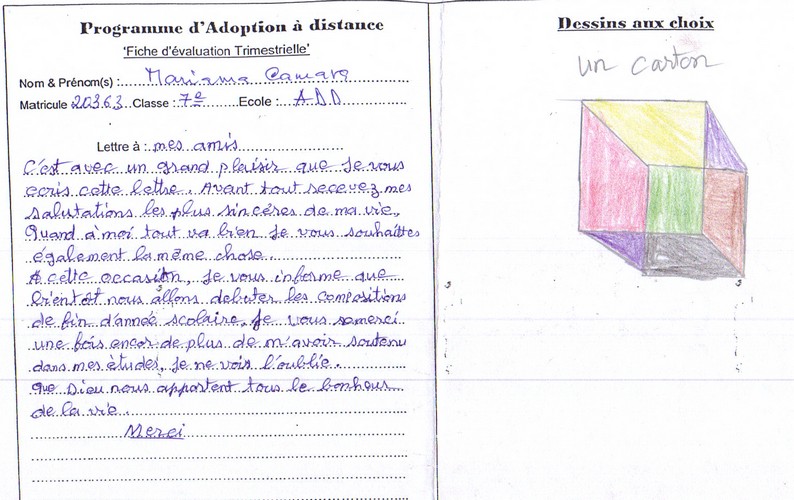 Programme d'Adoption à distance
'Fiche d'évaluation Trimestrielle'
Nom & Prénom(s) :. Mariama Camara
Matricule 20363 Classe : 7e Ecole : ADD
Lettre à : mes amis
C'est avec un grand plaisir que Je vous
ecris cette lettre. Avant tout recevez mes
salutations les plus sincères de ma vie,
Quand à moi tout va bien Je vous souhaittes
également la même chose.
A cette occasion, Je vous informe que
b'rientôt nous allons debuter les compositions
de fin d'année scolaire, Je vous remerci
une fois encor de plus de m'avoir soutenu
dans mes études, Je ne vois l'oublie.
que Dieu nous apportent tous le bonheur
de la vie.
Merci
Dessins aux choix
un carton